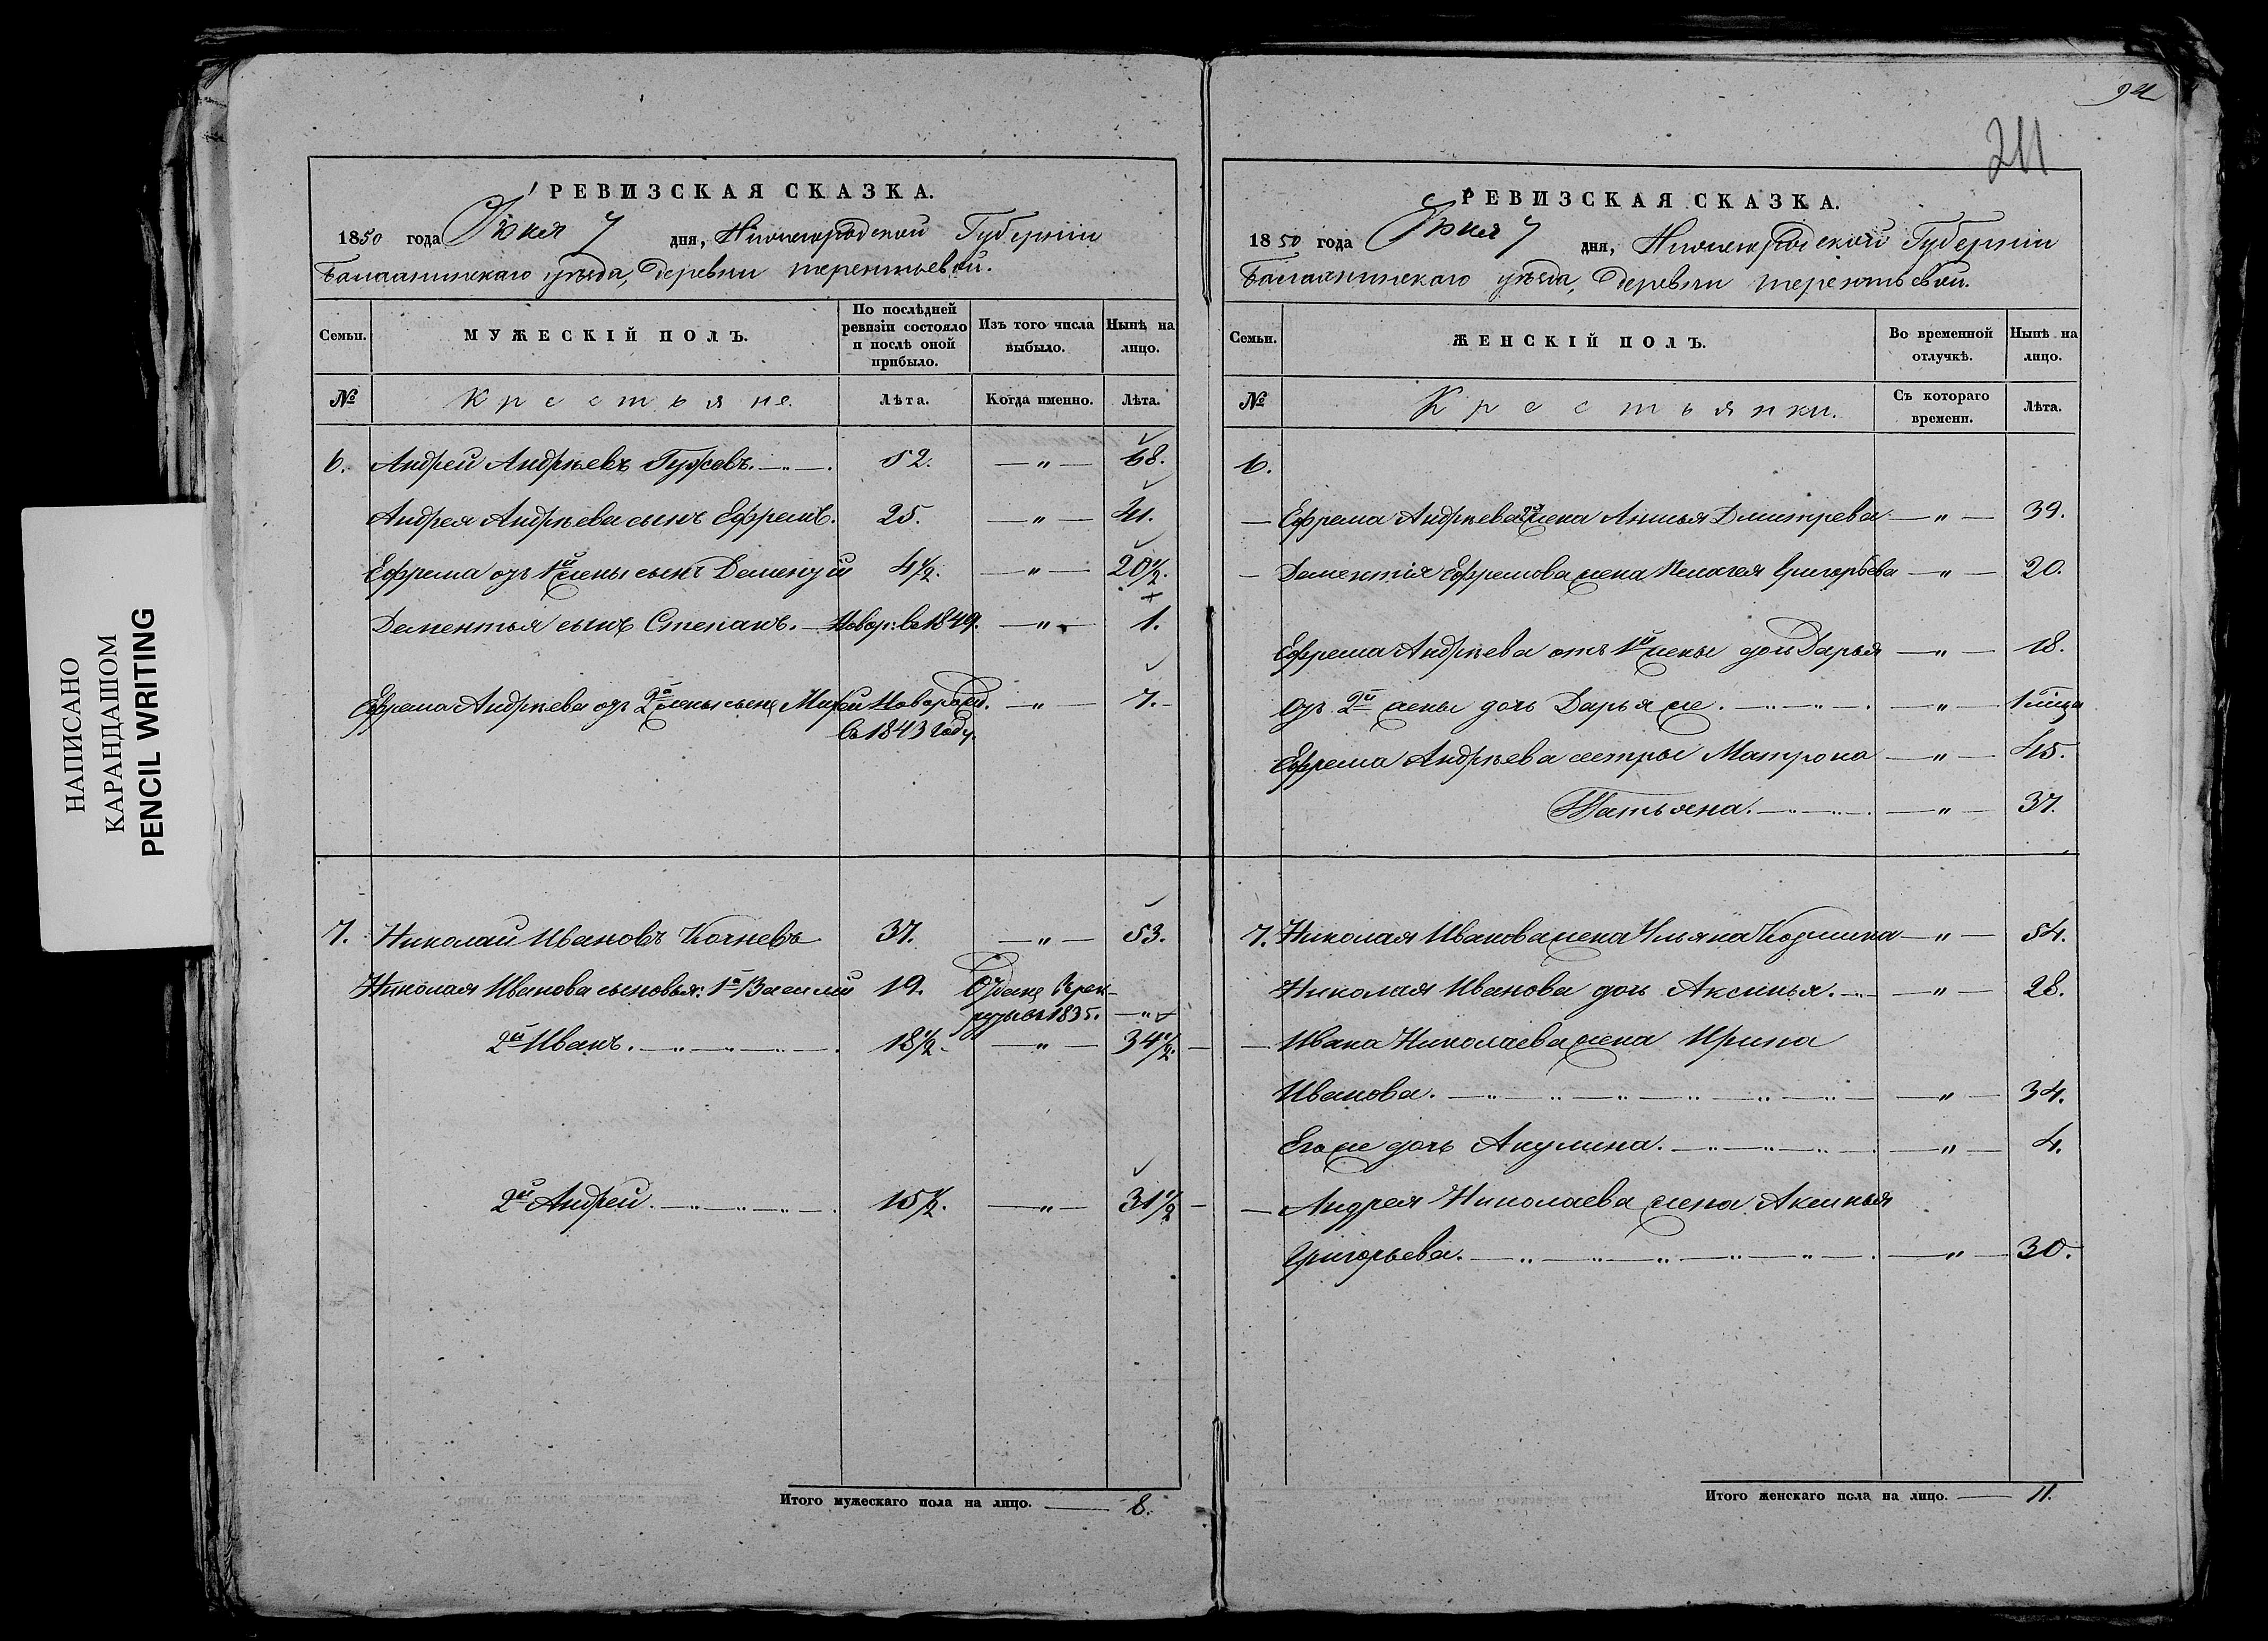 НАПИСАНО
КАРАНДАШОМ
PENCIL WRITING
РЕВИЗСКАЯ СКАЗКА.
1850 года Іюня 7 дня, Нижегородской Губерніи
Балахнинскаго уѣзда, деревни терентьевой.
Семьи. МУЖЕСКІЙ ПОЛЪ. По послѣдней ревизіи состояло и послѣ оной прибыло. Изъ того числа выбыло. Нынѣ на лицо.
№ Крестьяне. Лѣта. Когда именно. Лѣта.
6. Андрей Андрѣевъ 52. — " — 68.
Андрея Андрѣева сынъ Ефремъ. 25. — " — 41.
Ефрема отъ 1й жены сынъ Дементий 4½. — " — 20½.
Дементья сынъ Степанъ. — Новор: въ 1849. — " — 1.
Ефрема Андрѣева отъ 2й жены сынъ Новорожд. — " — 7. —
въ 1843 году.
7. Николай Ивановъ Кочневъ 37. — " — 53.
Николая Иванова сыновья: 1й Василий 19. Отданъ Врек-
руты въ 1835. — " —
2й Иванъ. 18½. — " — 34½.
2й Андрей. 15½. — " — 31½
Итого мужескаго пола на лицо. — 8.
94
211
РЕВИЗСКАЯ СКАЗКА.
1850 года Іюня 7 дня, Нижегородской Губерніи
Балахнинскаго уѣзда, деревни терентьевой.
Семьи. ЖЕНСКІЙ ПОЛЪ. Во временной отлучкѣ. Нынѣ на лицо.
№ Крестьянки. Съ котораго времени. Лѣта.
6.
— Ефрема Андрѣева 2я жена Анисья Дмитрева — " — 39.
— Дементія Ефремова жена Пелагея Григорьева — " — 20.
Ефрема Андрѣева отъ 1й жены дочь Дарья — " — 18.
Отъ 2й жены дочь Дарья же. — " —
Ефрема Андрѣева сестры Матрона — " — 45.
Татьяна. — " — 37.
7. Николая Иванова жена Ульяна Козмина — " — 54.
Николая Иванова дочь Аксинья. — " — 28.
— Ивана Николаева жена Ирина
Иванова. — " — 34.
Его же дочь Акулина. — " — 4.
— Андрея Николаева жена Аксинья
Григорьева. — " — 30.
Итого женскаго пола на лицо. — 11.